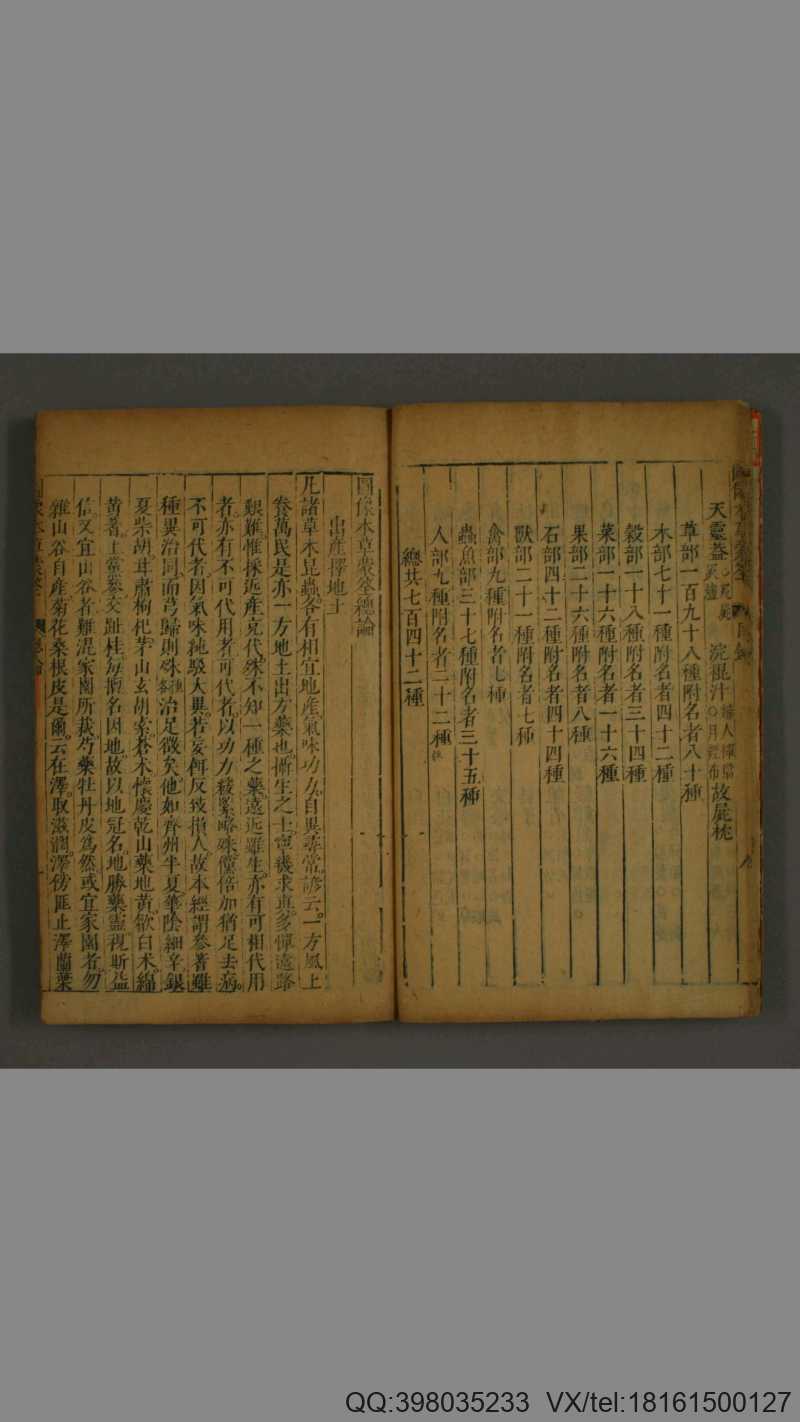 天靈蓋 浣褌汁 故屍枕
草部一百九十八種附名者八十種
木部七十一種附名者四十二種
穀部一十八種附名者三十四種
菜部一十六種附名者一十六種
果部二十六種附名者八種
石部四十二種附名者四十四種
獸部二十一種附名者七種
禽部九種附名者七種
蟲魚部三十七種附名者三十五種
人部九種附名者二十二種
總共七百四十二種
圖像本草蒙筌總論
出產擇地土
凡諸草木昆蟲各有相宜地產氣味功力自異尋常諺云一方風土
養萬民是亦一方地土出方藥也
艱難惟採近產充代殊不知一種之藥遠近雖生亦有可相代用
者亦有不可代用者可代者以功力緩緊略殊儻倍加猶足去病
不可代者因氣味純駁大異若妄餌反致損人故本經謂參蓍雖
種異治同而芎歸則殊 治足徵矣他如齊州半夏華陰細辛銀
夏柴胡 甘肅枸杞茅山玄胡索蒼朮懷慶乾山藥地黃歙白朮綿
黃蓍上黨參交趾桂每擅名因地故以地冠名地勝藥靈視斯益
信又宜山谷者難混家園所栽芍藥牡丹皮爲然或宜家園者勿
雜山谷自產菊花桑根皮是爾云在澤取滋潤澤傍匪止澤蘭葉
QQ:398035233 VX/tel:18161500127